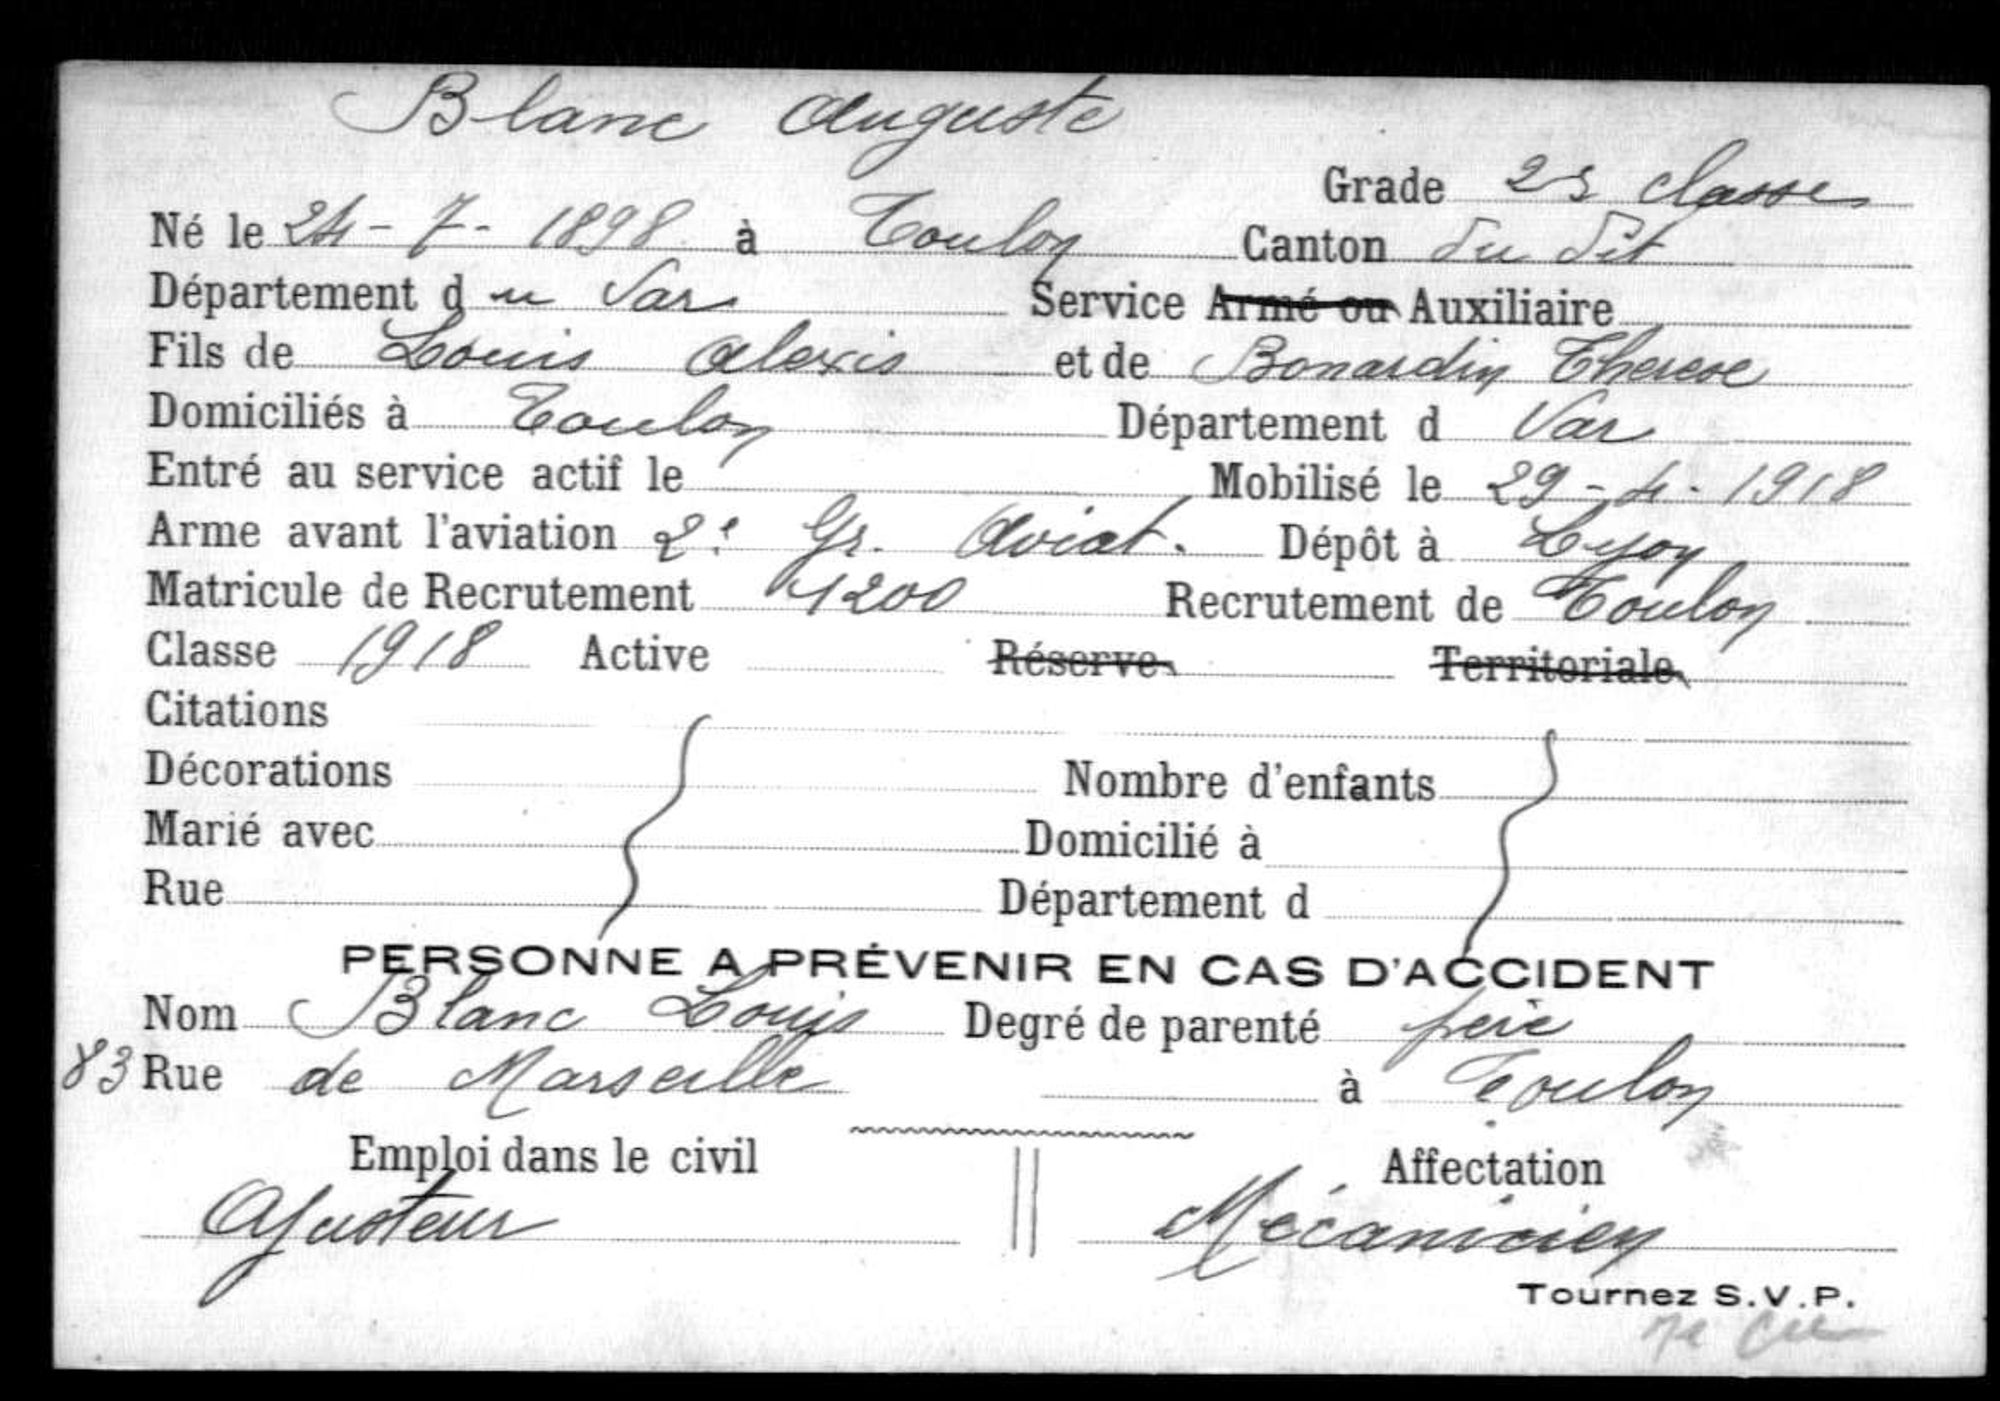 Blanc Auguste
Grade 2e classe
Né le 24-7-1898 à Toulon Canton du dit
Département du Var Service Armé ou Auxiliaire
Fils de Louis Alexis et de Bonardin Therese
Domiciliés à Toulon Département d Var
Entré au service actif le Mobilisé le 29-4-1918
Arme avant l'aviation 2e Gr. Aviat. Dépôt à Lyon
Matricule de Recrutement 1200 Recrutement de Toulon
Classe 1918 Active Réserve Territoriale
Citations
Décorations Nombre d'enfants
Marié avec Domicilié à
Rue Département d
PERSONNE A PRÉVENIR EN CAS D'ACCIDENT
Nom Blanc Louis Degré de parenté père
83 Rue de Marseille à Toulon
Emploi dans le civil Affectation
Ajusteur Mécanicien
Tournez S.V.P.